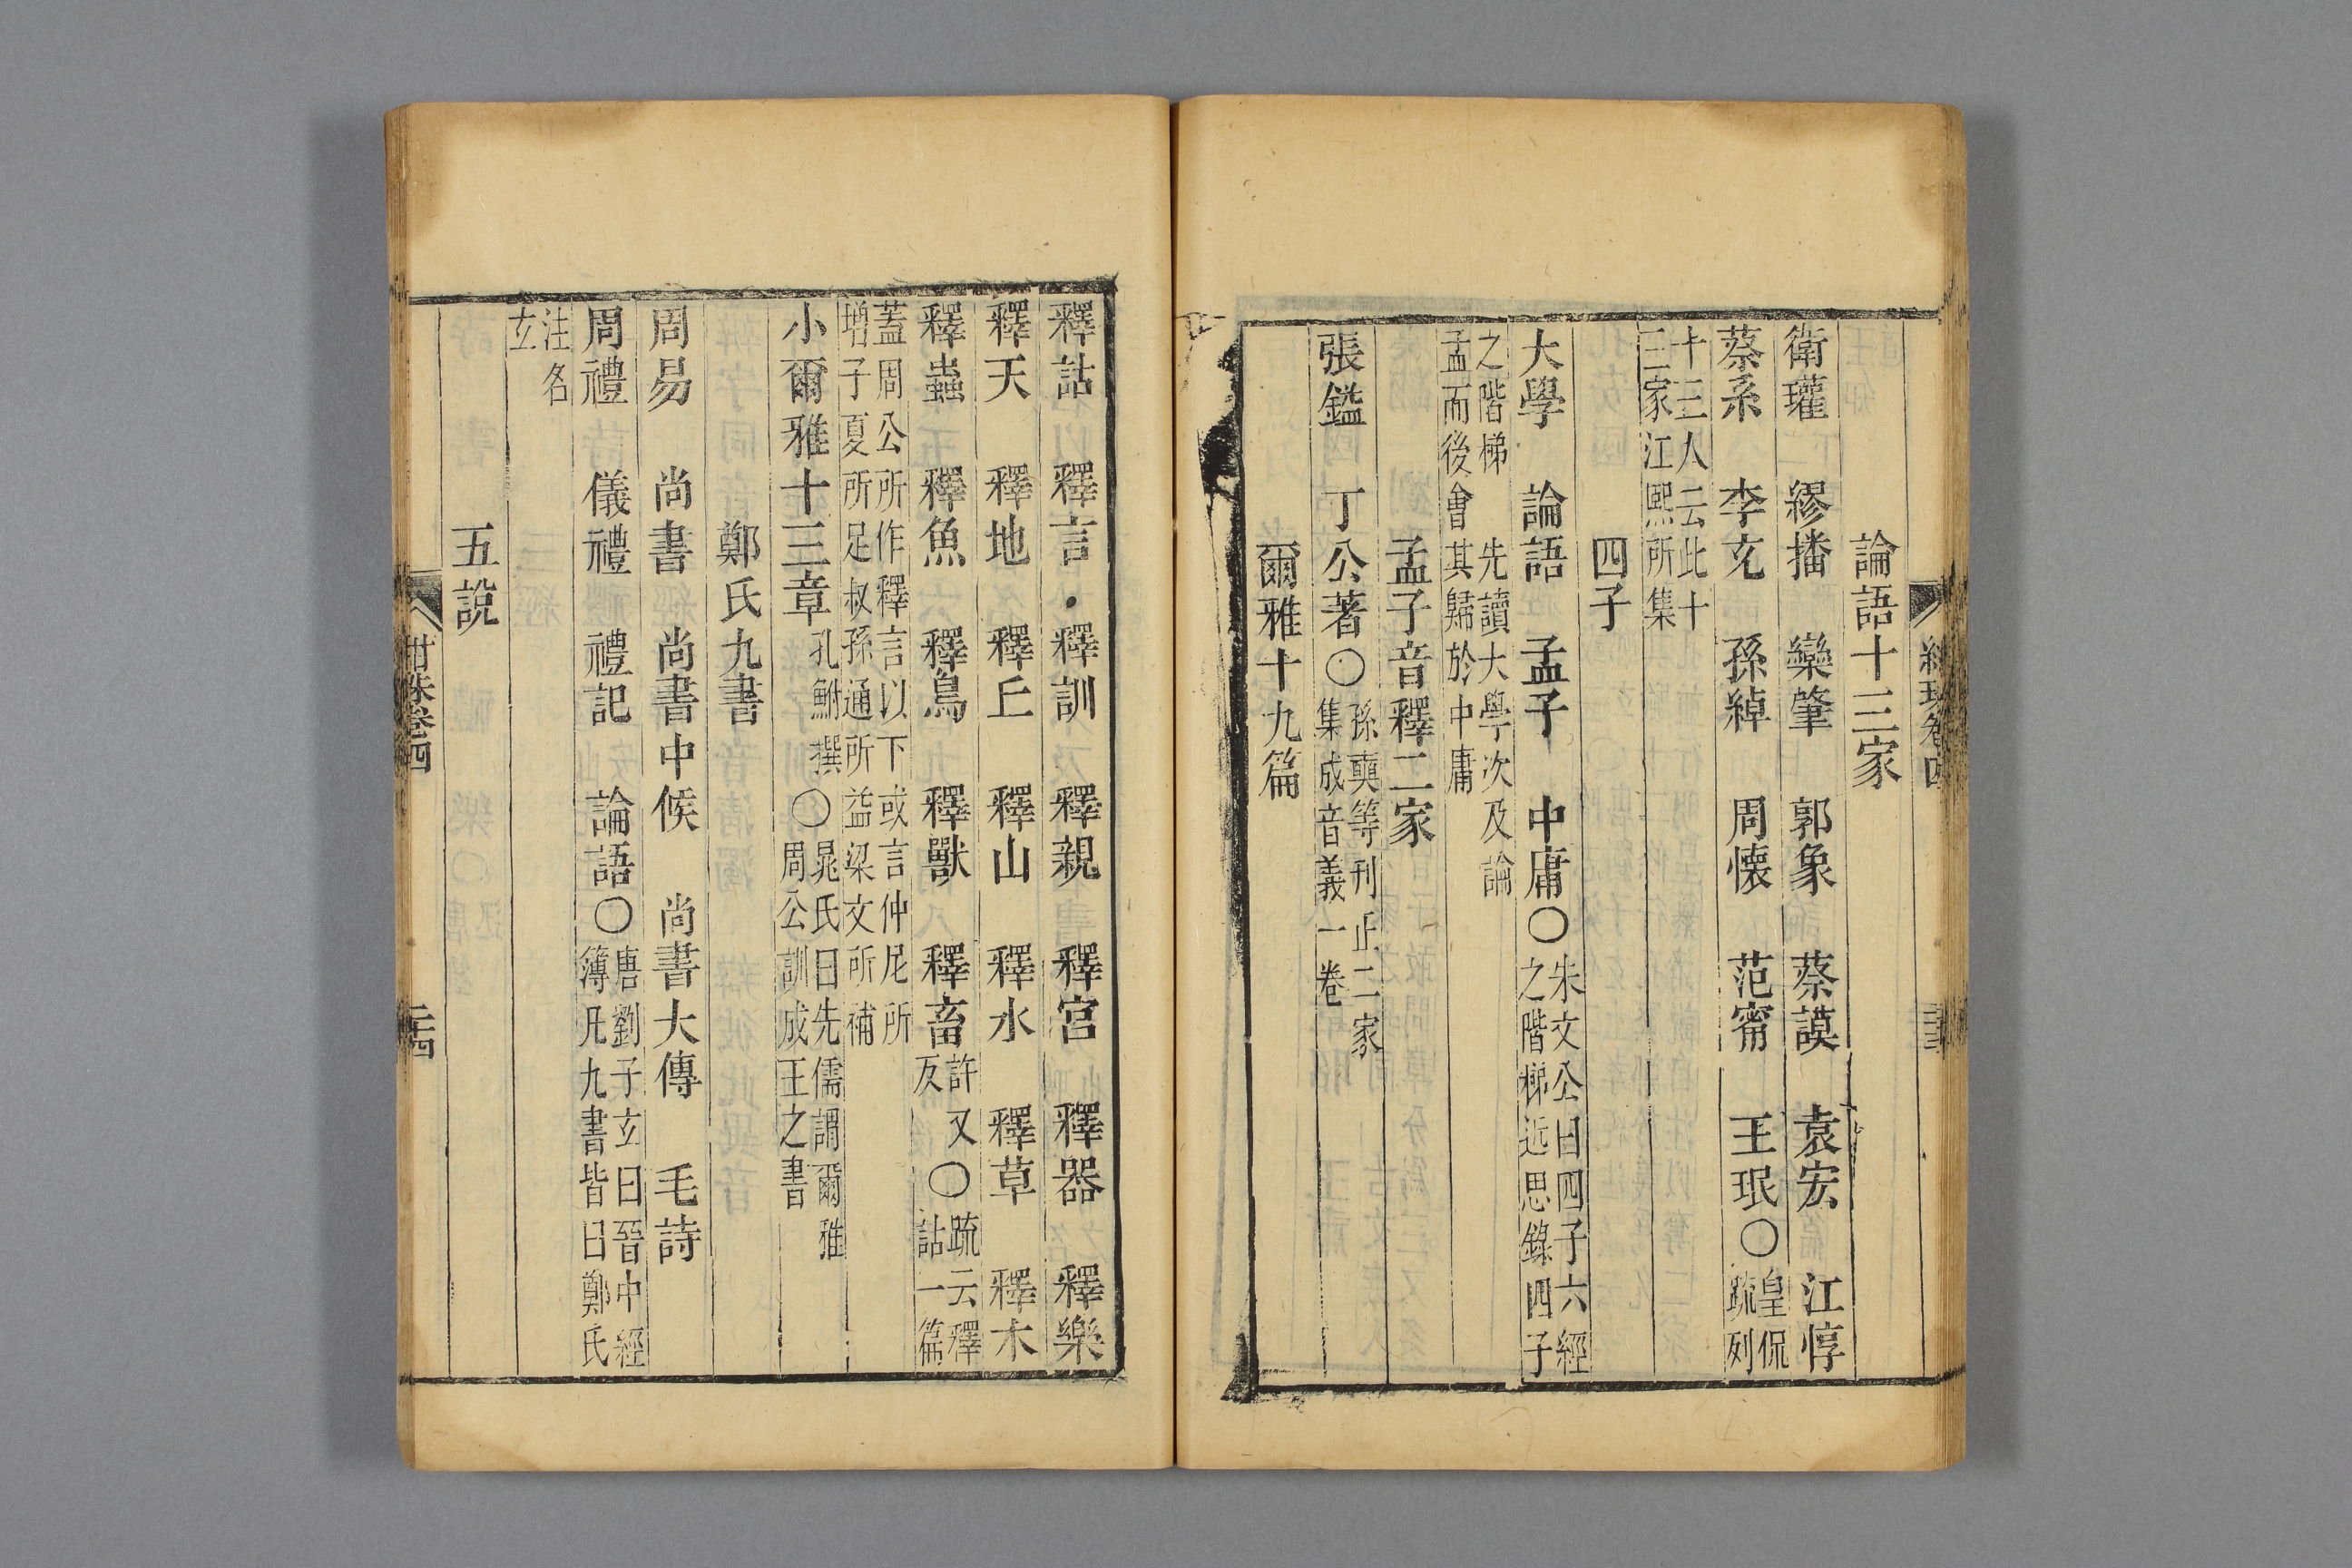 論語十三家
衛瓘 繆播 欒肇 郭象 蔡謨 袁宏 江惇
蔡系 李充 孫綽 周懷 范甯 王珉○皇侃疏列
十三人云此十三家江熙所集
四子
大學 論語 孟子 中庸○朱文公曰四子六經之階梯近思錄四子
之階梯 先讀大學次及論孟而後會其歸於中庸
孟子音釋二家
張鎰 丁公著○孫奭等刊正二家集成音義一卷
爾雅十九篇
釋詁 釋言 釋訓 釋親 釋宮 釋器 釋樂
釋天 釋地 釋丘 釋山 釋水 釋草 釋木
釋蟲 釋魚 釋鳥 釋獸 釋畜許又反○疏云釋詁一篇
蓋周公所作釋言以下或言仲尼所增子夏所足叔孫通所益梁文所補
小爾雅十三章孔鮒撰○晁氏曰先儒謂爾雅周公訓成王之書
鄭氏九書
周易 尚書 尚書中候 尚書大傳 毛詩
周禮 儀禮 禮記 論語○唐劉子玄曰晉中經簿凡九書皆曰鄭氏
注名玄
五說
卷四
二十四